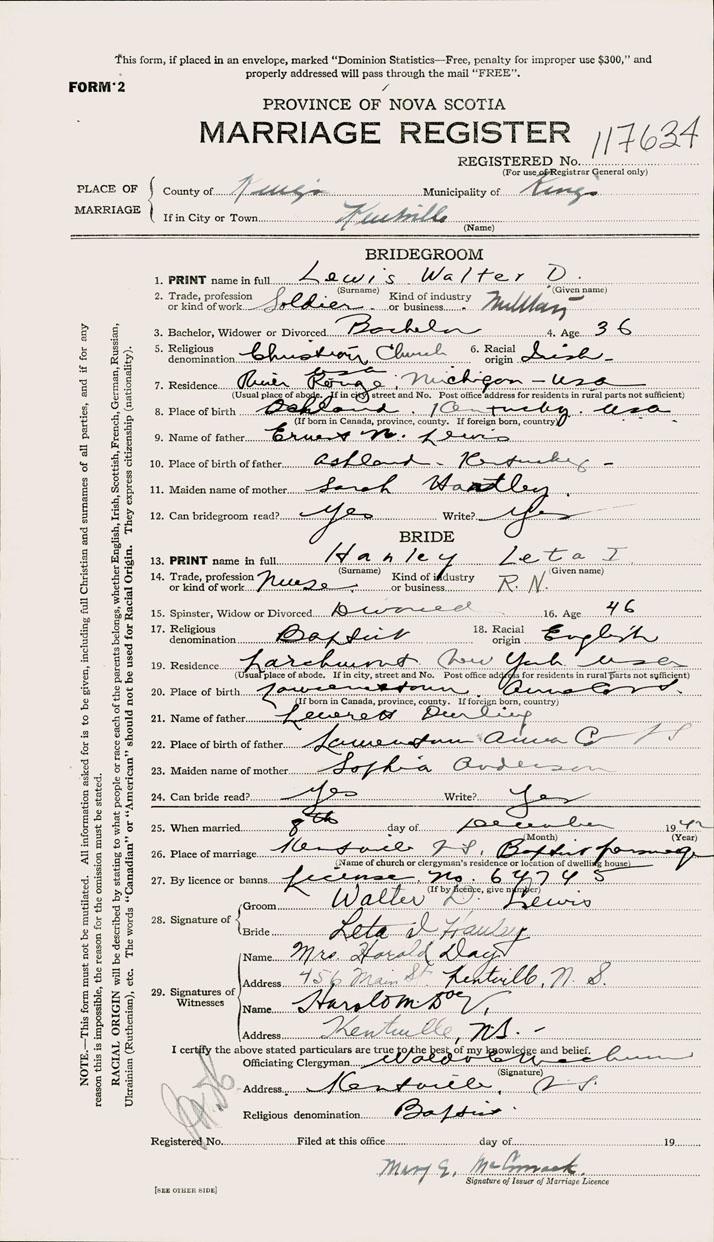 This form, if placed in an envelope, marked "Dominion Statistics—Free, penalty for improper use $300," and
properly addressed will pass through the mail "FREE".
FORM 2
PROVINCE OF NOVA SCOTIA
MARRIAGE REGISTER
117634
REGISTERED No.
(For use of Registrar General only)
PLACE OF MARRIAGE
County of Kings Municipality of Kings
If in City or Town Kentville
(Name)
BRIDEGROOM
1. PRINT name in full Lewis Walter D.
(Surname) (Given name)
2. Trade, profession or kind of work Soldier Kind of industry or business Military
3. Bachelor, Widower or Divorced Bachelor 4. Age 36
5. Religious denomination Christian Church 6. Racial origin Irish
7. Residence River Rouge, Michigan - USA
(Usual place of abode. If in city, street and No. Post office address for residents in rural parts not sufficient)
8. Place of birth Ashland. Kentucky. USA
(If born in Canada, province, county. If foreign born, country)
9. Name of father Ernest N. Lewis
10. Place of birth of father Ashland - Kentucky -
11. Maiden name of mother Sarah
12. Can bridegroom read? Yes Write? Yes
BRIDE
13. PRINT name in full Hanley Leta I
(Surname) (Given name)
14. Trade, profession or kind of work Nurse Kind of industry or business R. N.
15. Spinster, Widow or Divorced Divorced 16. Age 46
17. Religious denomination Baptist 18. Racial origin English
19. Residence Larchmont New York USA
(Usual place of abode. If in city, street and No. Post office address for residents in rural parts not sufficient)
20. Place of birth Lawrencetown
(If born in Canada, province, county. If foreign born, country)
21. Name of father Leverett Durling
22. Place of birth of father Lawrencetown Anna Co NS
23. Maiden name of mother Sophia Anderson
24. Can bride read? Yes Write? Yes
25. When married 8th day of December 1942
(Month) (Year)
26. Place of marriage Kentville N.S. Baptist Parsonage
(Name of church or clergyman's residence or location of dwelling house)
27. By licence or banns License No. 64745
(If by licence, give number)
28. Signature of
Groom Walter D. Lewis
Bride Leta I Hanley
29. Signatures of Witnesses
Name Mrs. Harold Day
Address 456 Main St Kentville, N. S.
Name Harold M Day
Address Kentville, NS. -
I certify the above stated particulars are true to the best of my knowledge and belief.
Officiating Clergyman
(Signature)
Address Kentville, N.S.
Religious denomination Baptist
Registered No. Filed at this office day of 19
Mary E. McCormack
Signature of Issuer of Marriage Licence
[SEE OTHER SIDE]
NOTE.—This form must not be mutilated. All information asked for is to be given, including full Christian and surnames of all parties, and if for any
reason this is impossible, the reason for the omission must be stated.
RACIAL ORIGIN will be described by stating to what people or race each of the parents belongs, whether English, Irish, Scottish, French, German, Russian,
Ukrainian (Ruthenian), etc. The words "Canadian" or "American" should not be used for Racial Origin. They express citizenship (nationality).